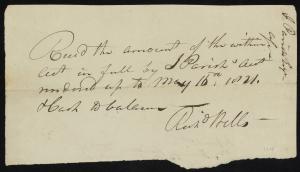 Recd the amount of the within
act in full by J Parish's act
rendered up to May 16th 1821.
& Cash to balance
Richd Bells